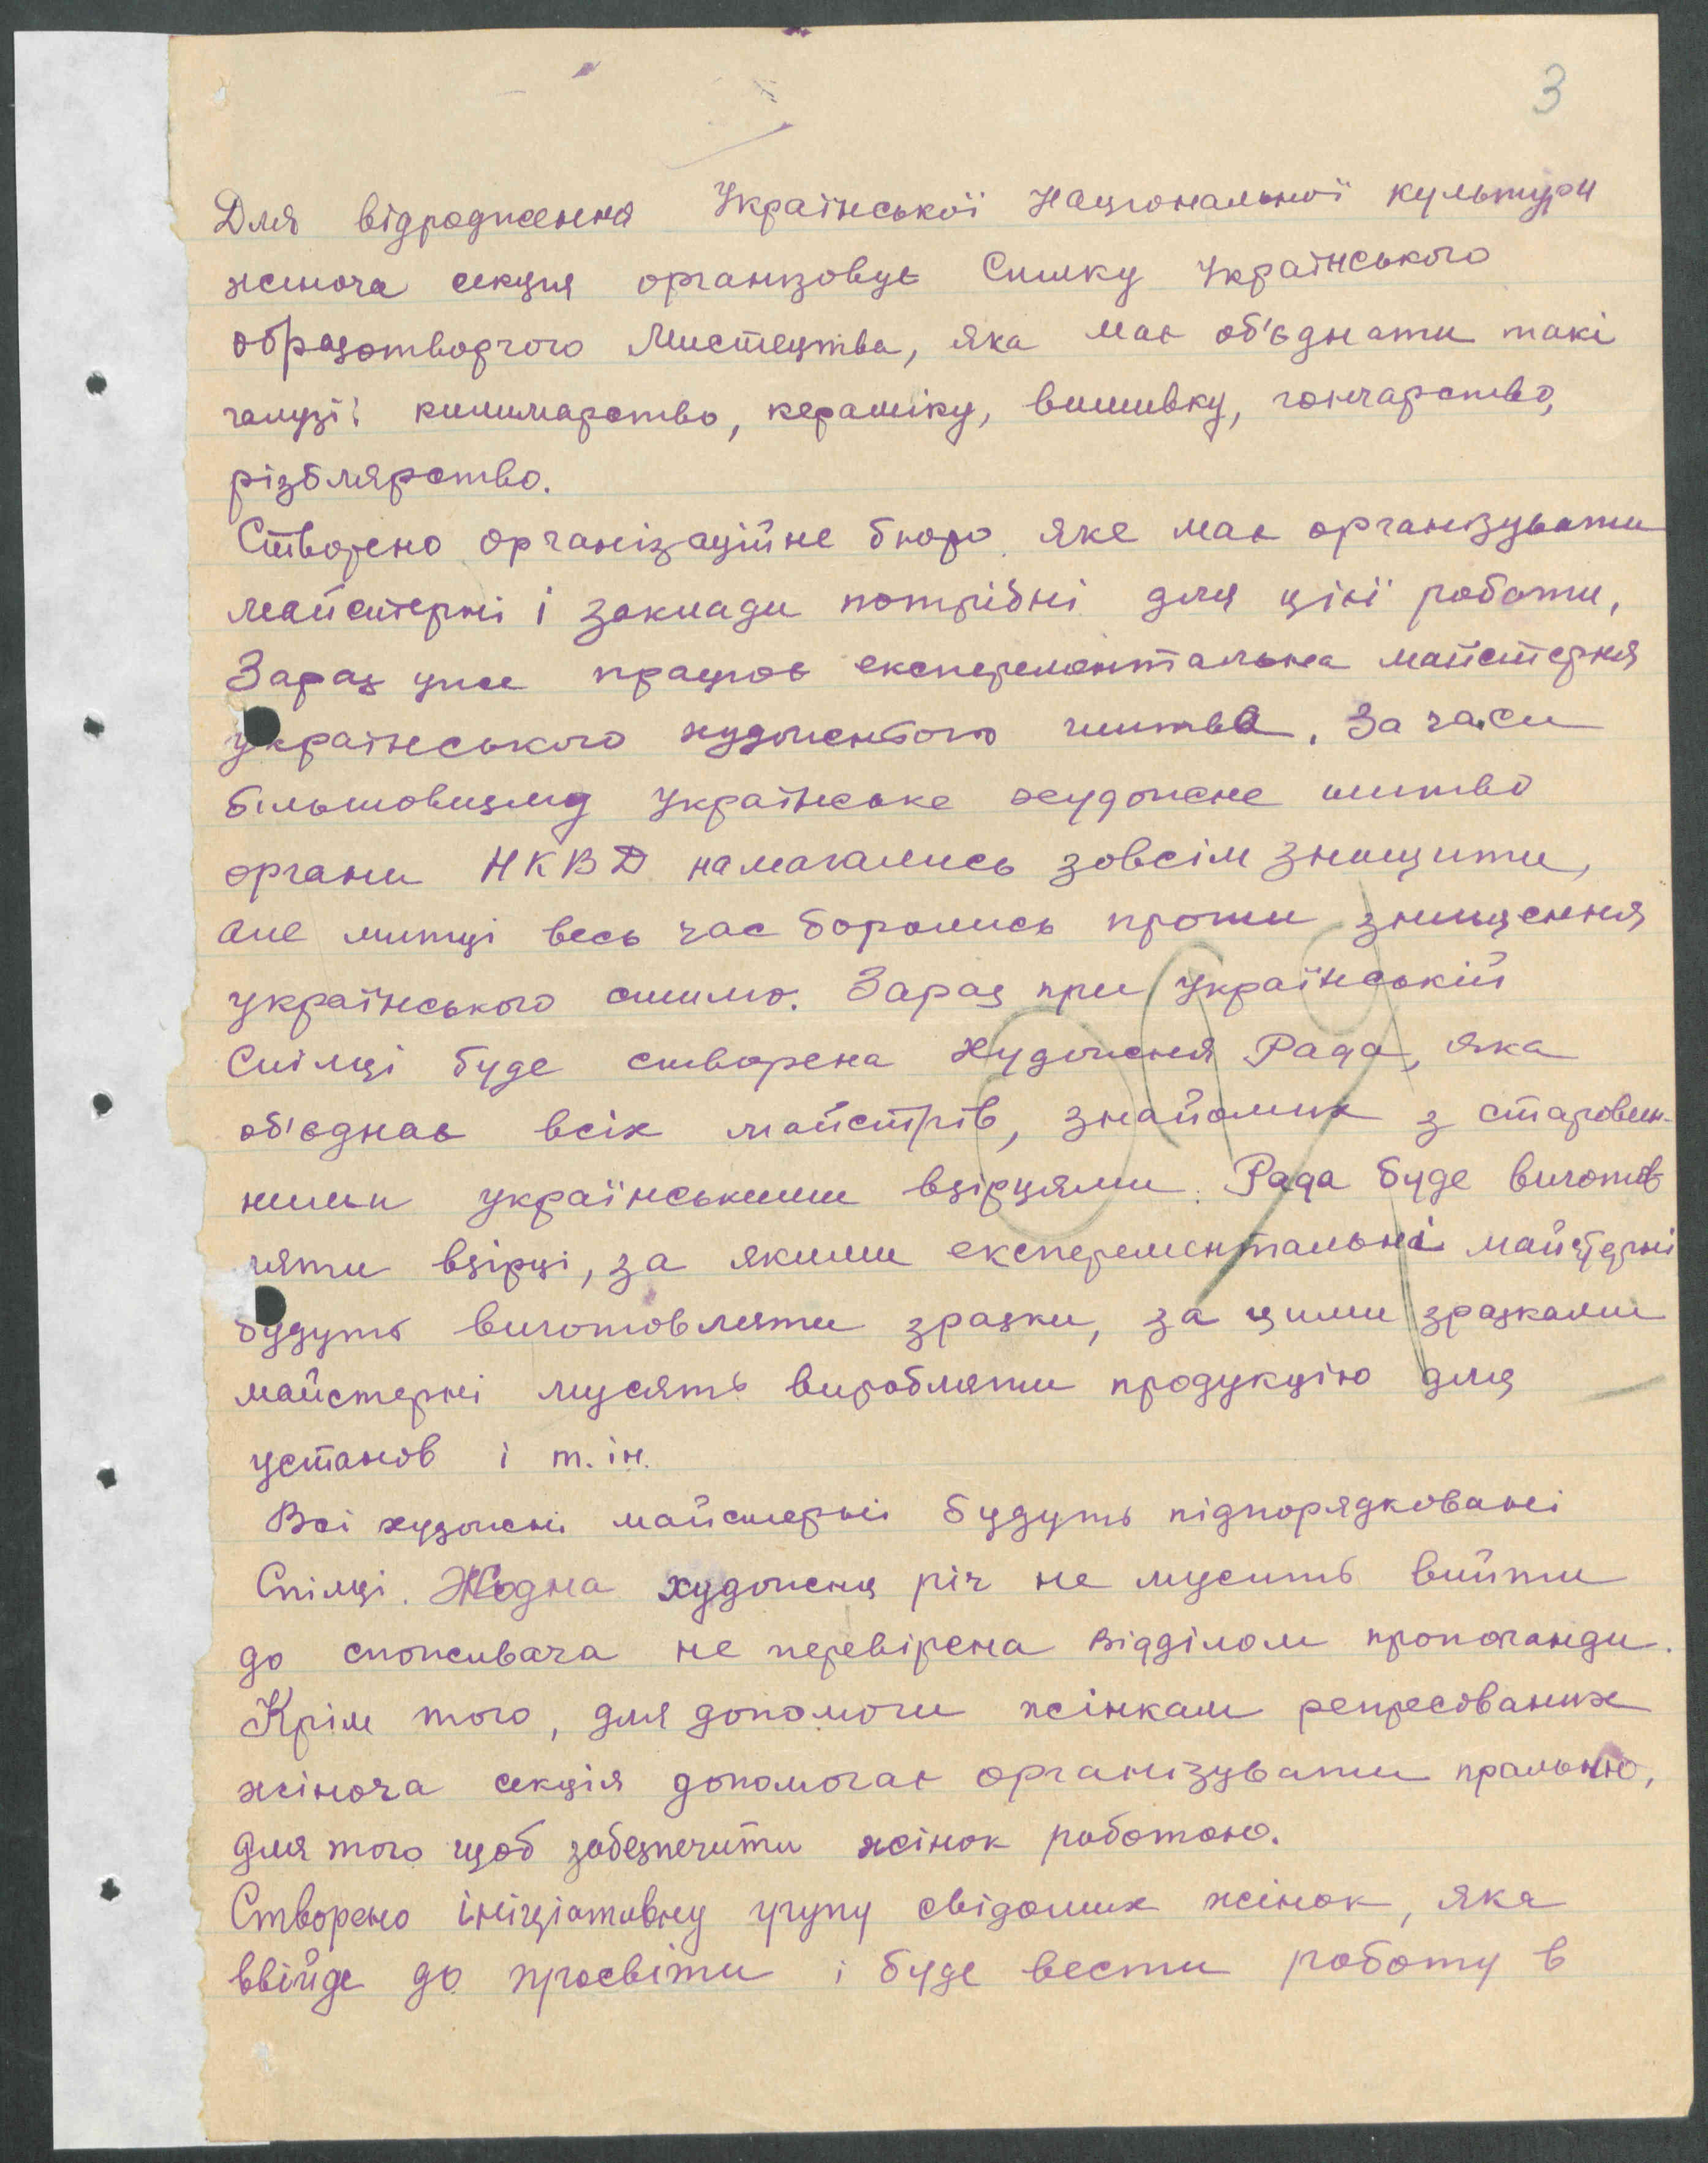 3
Для відродження Української Національної культури
жіноча секція організовує Спілку Українського
образотворчого Мистецтва, яка має об'єднати такі
галузі: килимарство, кераміку, вишивку, гончарство,
різблярство.
Створено організаційне бюро яке має організувати
майстерні і заклади потрібні для цієї роботи,
Зараз уже працює експерементальна майстерня
українського художнього шитва. За часи
більшовизму Українське художнє шитво
органи НКВД намагались зовсім знищити,
але митці весь час боролись проти знищення
українського стилю. Зараз при Українській
Спілці буде створена Художня Рада, яка
об'єднає всіх майстрів, знайомих з старовин-
ними українськими взірцями. Рада буде виготов
ляти взірці, за якими експерементальні майстерні
будуть виготовляти зразки, за цими зразками
майстерні мусять виробляти продукцію для
установ і т. ін.
Всі художні майстерні будуть підпорядковані
Спілці. Жодна художня річ не мусить вийти
до споживача не перевірена Відділом пропоганди.
Крім того, для допомоги жінкам репресованих
жіноча секція допомогає організувати пральню,
для того щоб забезпечити жінок роботою.
Створено ініціативну групу свідомих жінок, яка
ввійде до просвіти і буде вести роботу в